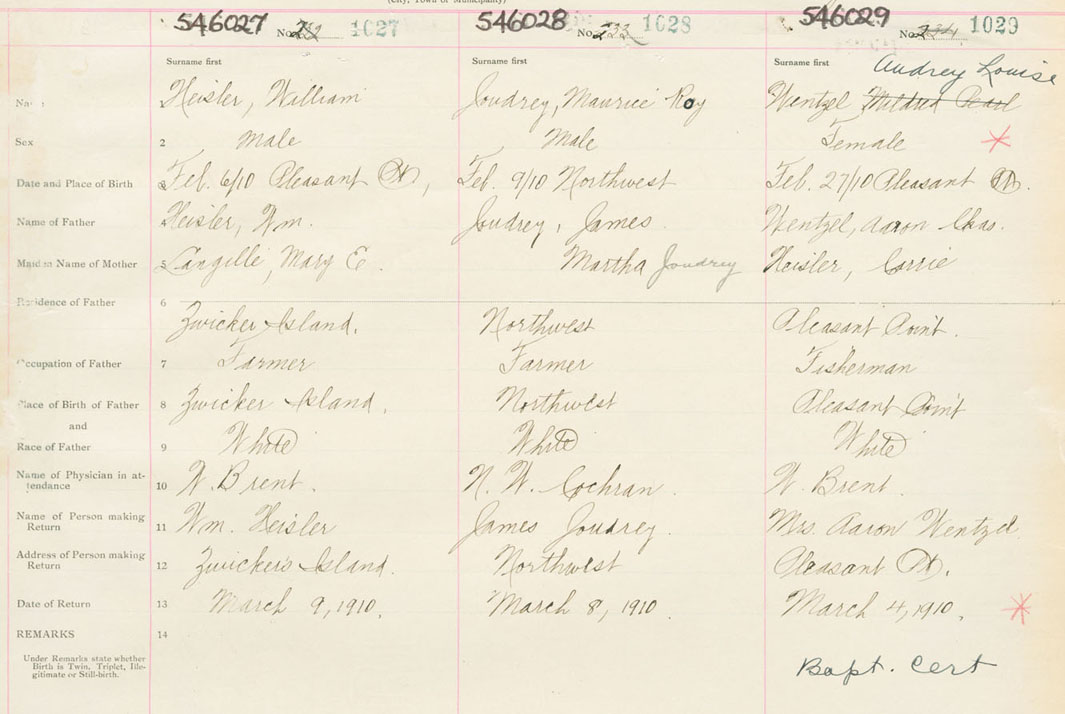 (City, Town or Municipality)
546027 No. 232 1027 546028 No. 233 1028 546029 No. 234 1029
Surname first Surname first Surname first Audrey Louise
Heisler, William Joudrey, Maurice Roy Wentzel Mildred Pearl
Sex 2 Male Male Female
Date and Place of Birth 3 Feb. 6/10 Pleasant Pt, Feb. 9/10 Northwest Feb. 27/10 Pleasant Pt.
Name of Father 4 Heisler, Wm. Joudrey, James Wentzel, Aaron Chas.
Maiden Name of Mother 5 Langille, Mary E. Martha Joudrey Heisler, Corrie
Residence of Father 6
Zwicker Island. Northwest Pleasant Point.
Occupation of Father 7 Farmer Farmer Fisherman
Place of Birth of Father 8 Zwicker Island. Northwest Pleasant Point
and
Race of Father 9 White White White
Name of Physician in at-
tendance 10 W. Brent. N. W. Cochran. W. Brent.
Name of Person making
Return 11 Wm. Heisler James Joudrey. Mrs. Aaron Wentzel
Address of Person making
Return 12 Zwicker's Island. Northwest Pleasant Pt.
Date of Return 13 March 9, 1910. March 8, 1910. March 4, 1910.
REMARKS 14
Under Remarks state whether
Birth is Twin, Triplet, Ille-
gitimate or Still-birth.
Bapt. Cert